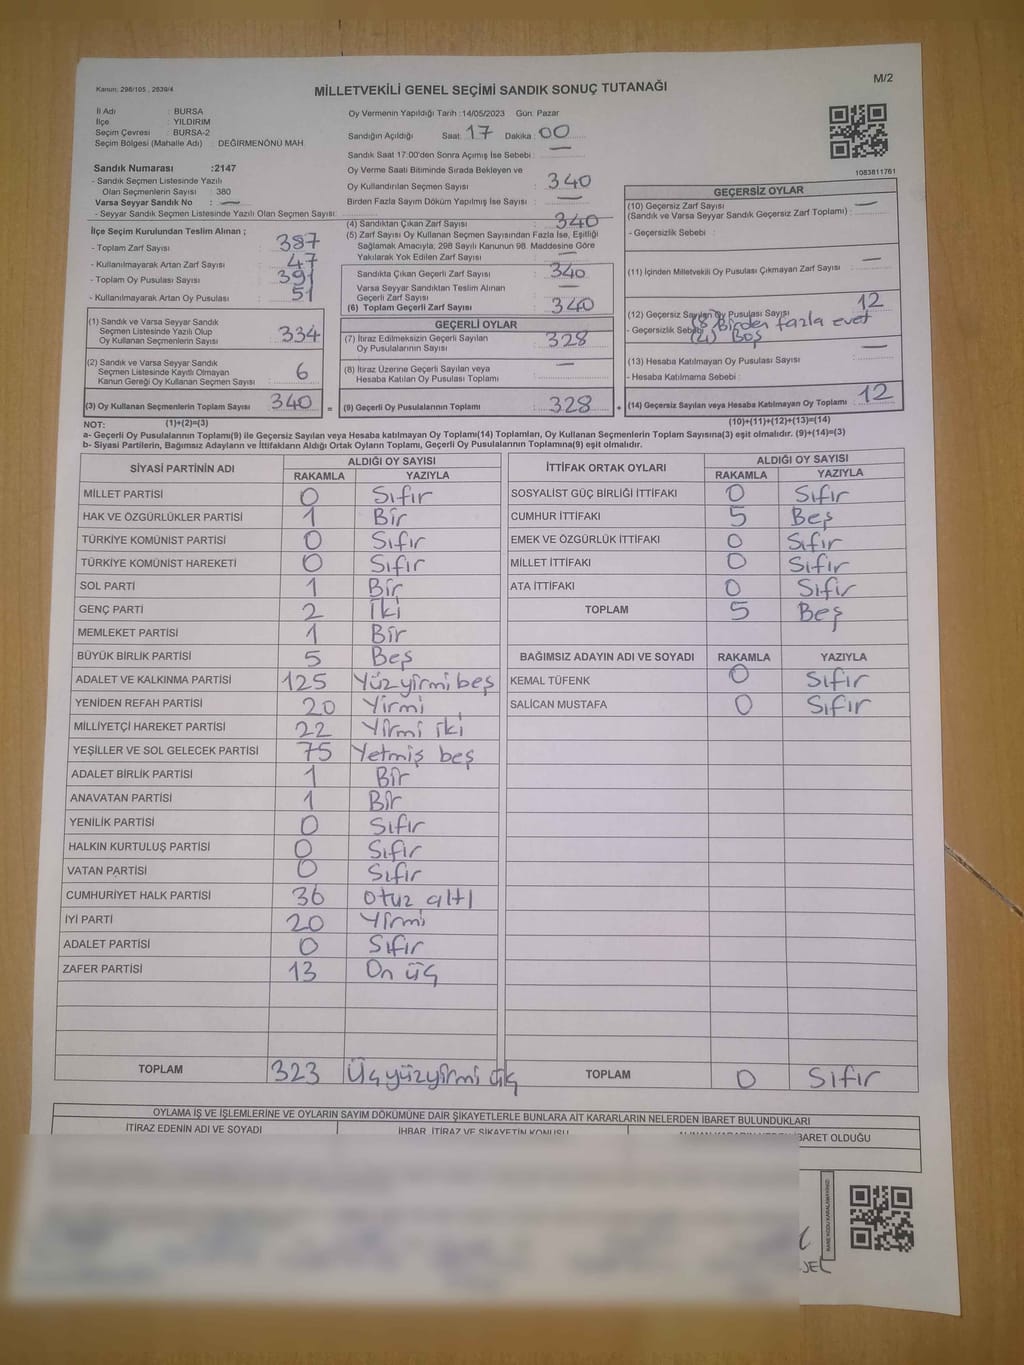 Kanun: 298/105 , 2839/4
MİLLETVEKİLİ GENEL SEÇİMİ SANDIK SONUÇ TUTANAĞI
M/2
İl Adı : BURSA
İlçe : YILDIRIM
Seçim Çevresi : BURSA-2
Seçim Bölgesi (Mahalle Adı) : DEĞİRMENÖNÜ MAH.
Sandık Numarası :2147
- Sandık Seçmen Listesinde Yazılı
Olan Seçmenlerin Sayısı : 380
Varsa Seyyar Sandık No : —
- Seyyar Sandık Seçmen Listesinde Yazılı Olan Seçmen Sayısı:
Oy Vermenin Yapıldığı Tarih :14/05/2023 Gün: Pazar
Sandığın Açıldığı Saat: 17 Dakika: 00
Sandık Saat 17:00'den Sonra Açımış İse Sebebi : —
Oy Verme Saati Bitiminde Sırada Bekleyen ve
Oy Kullandırılan Seçmen Sayısı : 340
Birden Fazla Sayım Döküm Yapılmış İse Sayısı : —
1083811761
İlçe Seçim Kurulundan Teslim Alınan ;
- Toplam Zarf Sayısı : 387
- Kullanılmayarak Artan Zarf Sayısı : 47
- Toplam Oy Pusulası Sayısı : 391
- Kullanılmayarak Artan Oy Pusulası : 51
(1) Sandık ve Varsa Seyyar Sandık
Seçmen Listesinde Yazılı Olup
Oy Kullanan Seçmenlerin Sayısı : 334
(2) Sandık ve Varsa Seyyar Sandık
Seçmen Listesinde Kayıtlı Olmayan
Kanun Gereği Oy Kullanan Seçmen Sayısı : 6
(3) Oy Kullanan Seçmenlerin Toplam Sayısı : 340 =
(4) Sandıktan Çıkan Zarf Sayısı : 340
(5) Zarf Sayısı Oy Kullanan Seçmen Sayısından Fazla İse, Eşitliği
Sağlamak Amacıyla; 298 Sayılı Kanunun 98. Maddesine Göre
Yakılarak Yok Edilen Zarf Sayısı : —
Sandıkta Çıkan Geçerli Zarf Sayısı : 340
Varsa Seyyar Sandıktan Teslim Alınan
Geçerli Zarf Sayısı : —
(6) Toplam Geçerli Zarf Sayısı : 340
GEÇERLİ OYLAR
(7) İtiraz Edilmeksizin Geçerli Sayılan
Oy Pusulalarının Sayısı : 328
(8) İtiraz Üzerine Geçerli Sayılan veya
Hesaba Katılan Oy Pusulası Toplamı : —
(9) Geçerli Oy Pusulalarının Toplamı : 328 +
GEÇERSİZ OYLAR
(10) Geçersiz Zarf Sayısı
(Sandık ve Varsa Seyyar Sandık Geçersiz Zarf Toplamı) : —
- Geçersizlik Sebebi :
(11) İçinden Milletvekili Oy Pusulası Çıkmayan Zarf Sayısı : —
(12) Geçersiz Sayılan Oy Pusulası Sayısı : 12
- Geçersizlik Sebebi : (8) Birden fazla evet
(4) Boş
(13) Hesaba Katılmayan Oy Pusulası Sayısı : —
- Hesaba Katılmama Sebebi :
(14) Geçersiz Sayılan veya Hesaba Katılmayan Oy Toplamı : 12
NOT: (1)+(2)=(3) (10)+(11)+(12)+(13)=(14)
a- Geçerli Oy Pusulalarının Toplamı(9) ile Geçersiz Sayılan veya Hesaba katılmayan Oy Toplamı(14) Toplamları, Oy Kullanan Seçmenlerin Toplam Sayısına(3) eşit olmalıdır. (9)+(14)=(3)
b- Siyasi Partilerin, Bağımsız Adayların ve İttifakların Aldığı Ortak Oyların Toplamı, Geçerli Oy Pusulalarının Toplamına(9) eşit olmalıdır.
SİYASİ PARTİNİN ADI ALDIĞI OY SAYISI
RAKAMLA YAZIYLA
MİLLET PARTİSİ 0 Sıfır
HAK VE ÖZGÜRLÜKLER PARTİSİ 1 Bir
TÜRKİYE KOMÜNİST PARTİSİ 0 Sıfır
TÜRKİYE KOMÜNİST HAREKETİ 0 Sıfır
SOL PARTİ 1 Bir
GENÇ PARTİ 2 İki
MEMLEKET PARTİSİ 1 Bir
BÜYÜK BİRLİK PARTİSİ 5 Beş
ADALET VE KALKINMA PARTİSİ 125 Yüzyirmi beş
YENİDEN REFAH PARTİSİ 20 Yirmi
MİLLİYETÇİ HAREKET PARTİSİ 22 Yirmi iki
YEŞİLLER VE SOL GELECEK PARTİSİ 75 Yetmiş beş
ADALET BİRLİK PARTİSİ 1 Bir
ANAVATAN PARTİSİ 1 Bir
YENİLİK PARTİSİ 0 Sıfır
HALKIN KURTULUŞ PARTİSİ 0 Sıfır
VATAN PARTİSİ 0 Sıfır
CUMHURİYET HALK PARTİSİ 36 Otuz altı
İYİ PARTİ 20 Yirmi
ADALET PARTİSİ 0 Sıfır
ZAFER PARTİSİ 13 On üç
TOPLAM 323 Üçyüzyirmi üç
İTTİFAK ORTAK OYLARI ALDIĞI OY SAYISI
RAKAMLA YAZIYLA
SOSYALİST GÜÇ BİRLİĞİ İTTİFAKI 0 Sıfır
CUMHUR İTTİFAKI 5 Beş
EMEK VE ÖZGÜRLÜK İTTİFAKI 0 Sıfır
MİLLET İTTİFAKI 0 Sıfır
ATA İTTİFAKI 0 Sıfır
TOPLAM 5 Beş
BAĞIMSIZ ADAYIN ADI VE SOYADI RAKAMLA YAZIYLA
KEMAL TÜFENK 0 Sıfır
SALİCAN MUSTAFA 0 Sıfır
TOPLAM 0 Sıfır
OYLAMA İŞ VE İŞLEMLERİNE VE OYLARIN SAYIM DÖKÜMÜNE DAİR ŞİKAYETLERLE BUNLARA AİT KARARLARIN NELERDEN İBARET BULUNDUKLARI
İTİRAZ EDENİN ADI VE SOYADI
İHBAR, İTİRAZ VE ŞİKAYETİN KONUSU
İBARET OLDUĞU